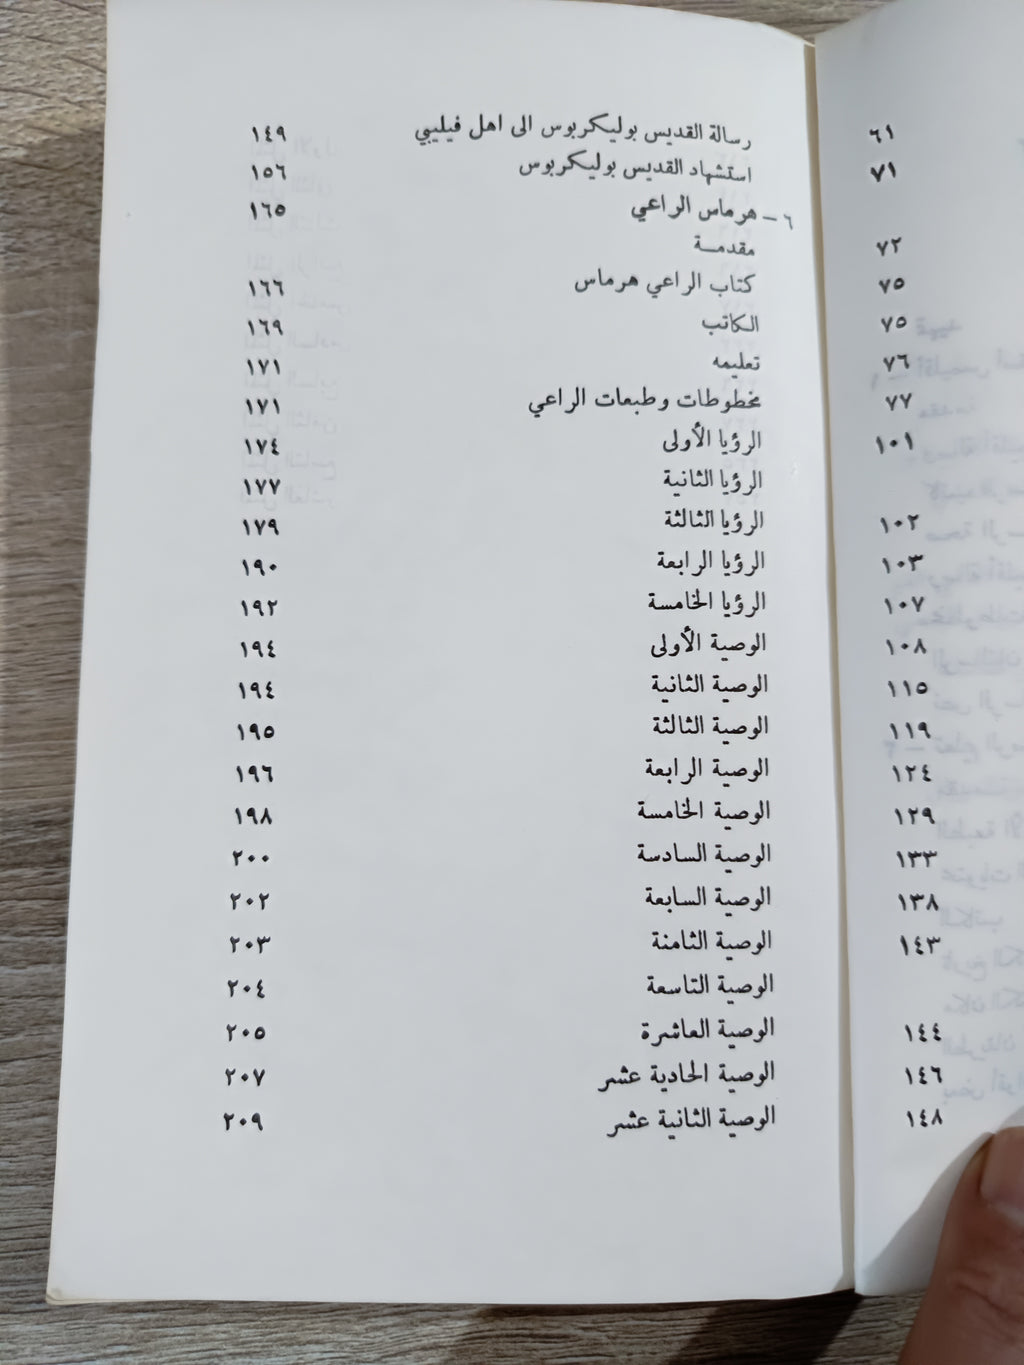 ٦١
٧١
٧٢
٧٥
٧٥
٧٦
٧٧
١٠١
١٠٢
١٠٣
١٠٧
١٠٨
١١٥
١١٩
١٢٤
١٢٩
١٣٣
١٣٨
١٤٣
١٤٤
١٤٦
١٤٨
رسالة القديس بوليكربوس الى اهل فيليبي ١٤٩
استشهاد القديس بوليكربوس ١٥٦
٦ – هرماس الراعي ١٦٥
مقدمــة
كتاب الراعي هرماس ١٦٦
الكاتب ١٦٩
تعليمه ١٧١
مخطوطات وطبعات الراعي ١٧١
الرؤيا الأولى ١٧٤
الرؤيا الثانية ١٧٧
الرؤيا الثالثة ١٧٩
الرؤيا الرابعة ١٩٠
الرؤيا الخامسة ١٩٢
الوصية الأولى ١٩٤
الوصية الثانية ١٩٤
الوصية الثالثة ١٩٥
الوصية الرابعة ١٩٦
الوصية الخامسة ١٩٨
الوصية السادسة ٢٠٠
الوصية السابعة ٢٠٢
الوصية الثامنة ٢٠٣
الوصية التاسعة ٢٠٤
الوصية العاشرة ٢٠٥
الوصية الحادية عشر ٢٠٧
الوصية الثانية عشر ٢٠٩